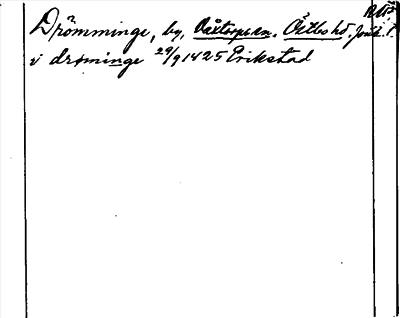 Drömminge, by, Våxtorps sn. Östbo hd. Jönk. l.
i drøminge 29/9 1425 Erikstad